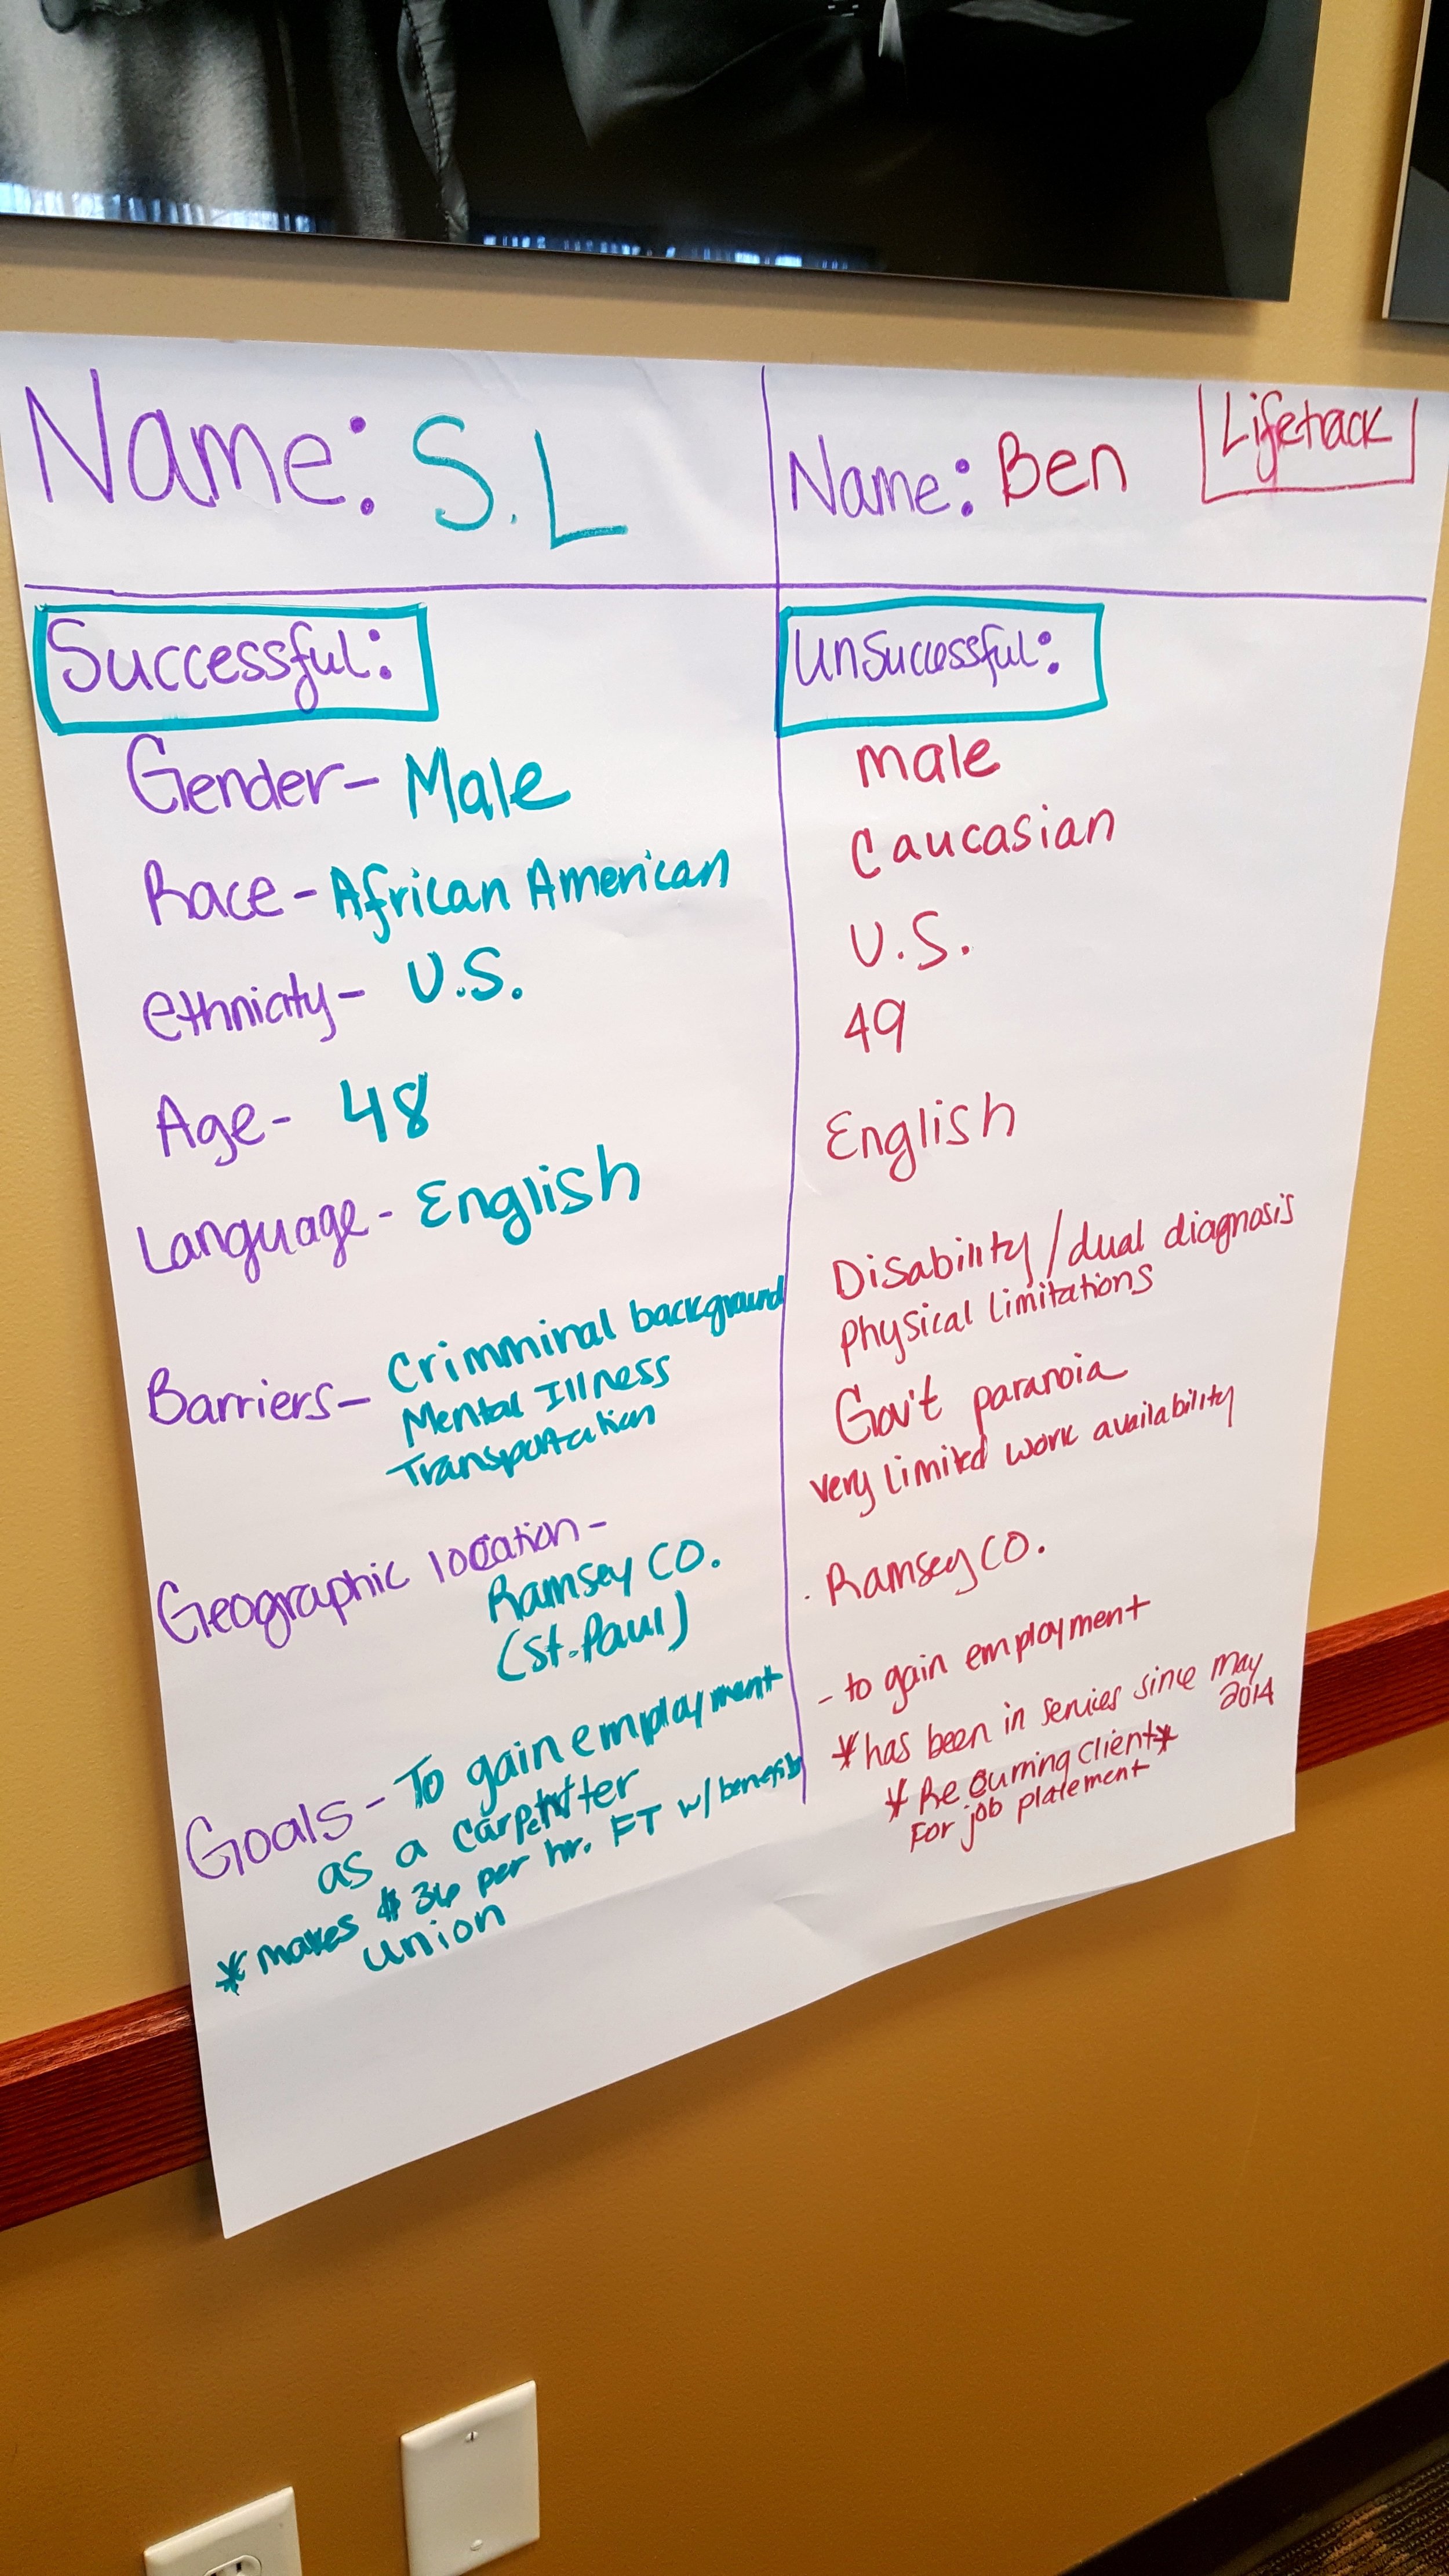 Name: S.L
Successful:
Gender- Male
Race- African American
ethnicity- U.S.
Age- 48
Language- English
Barriers- Crimminal background
Mental Illness
Transportation
Geographic location-
Ramsey CO.
(St. Paul)
Goals- To gain employment
as a carpenter
* makes $36 per hr. FT w/ benefits
union
Name: Ben
Lifetrack
Unsuccessful:
male
Caucasian
U.S.
49
English
Disability/dual diagnosis
Physical limitations
Gov't paranoia
very limited work availability
Ramsey CO.
- to gain employment
* has been in services since may
2014
* Recurring client *
For job placement